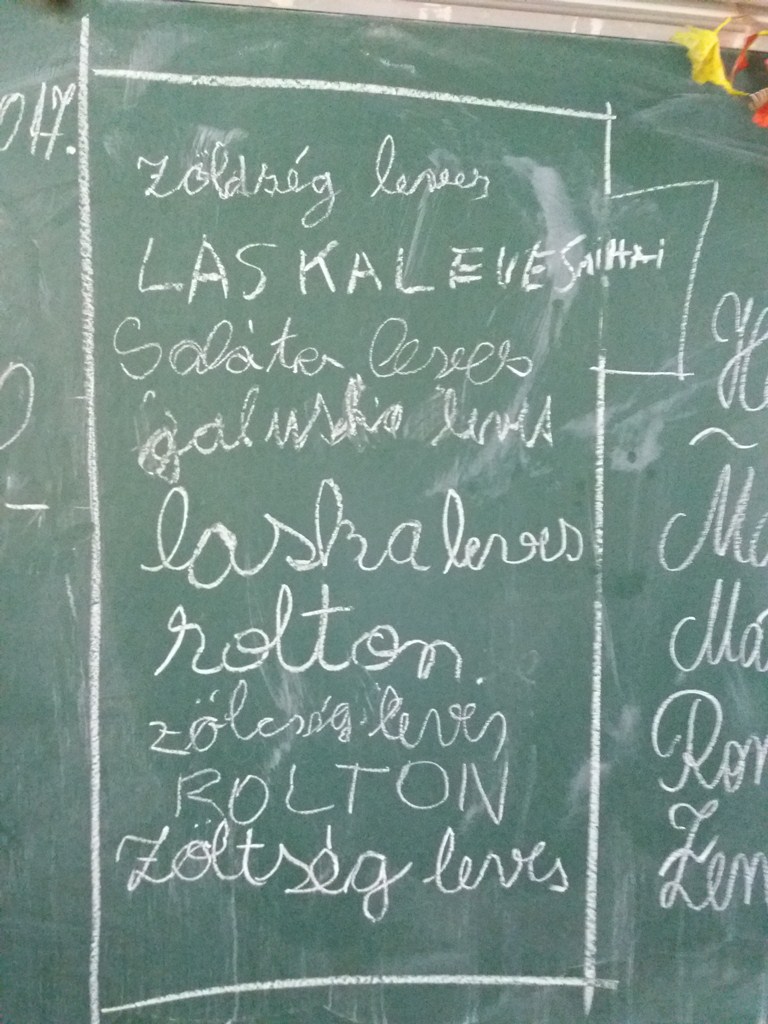 017.
zöldség leves
LASKALEVESMIHAI
Saláta leves
galuska leves
laskaleves
rolton.
zölcség leves
ROLTON
Zöltség leves
Má
Ron
Zen